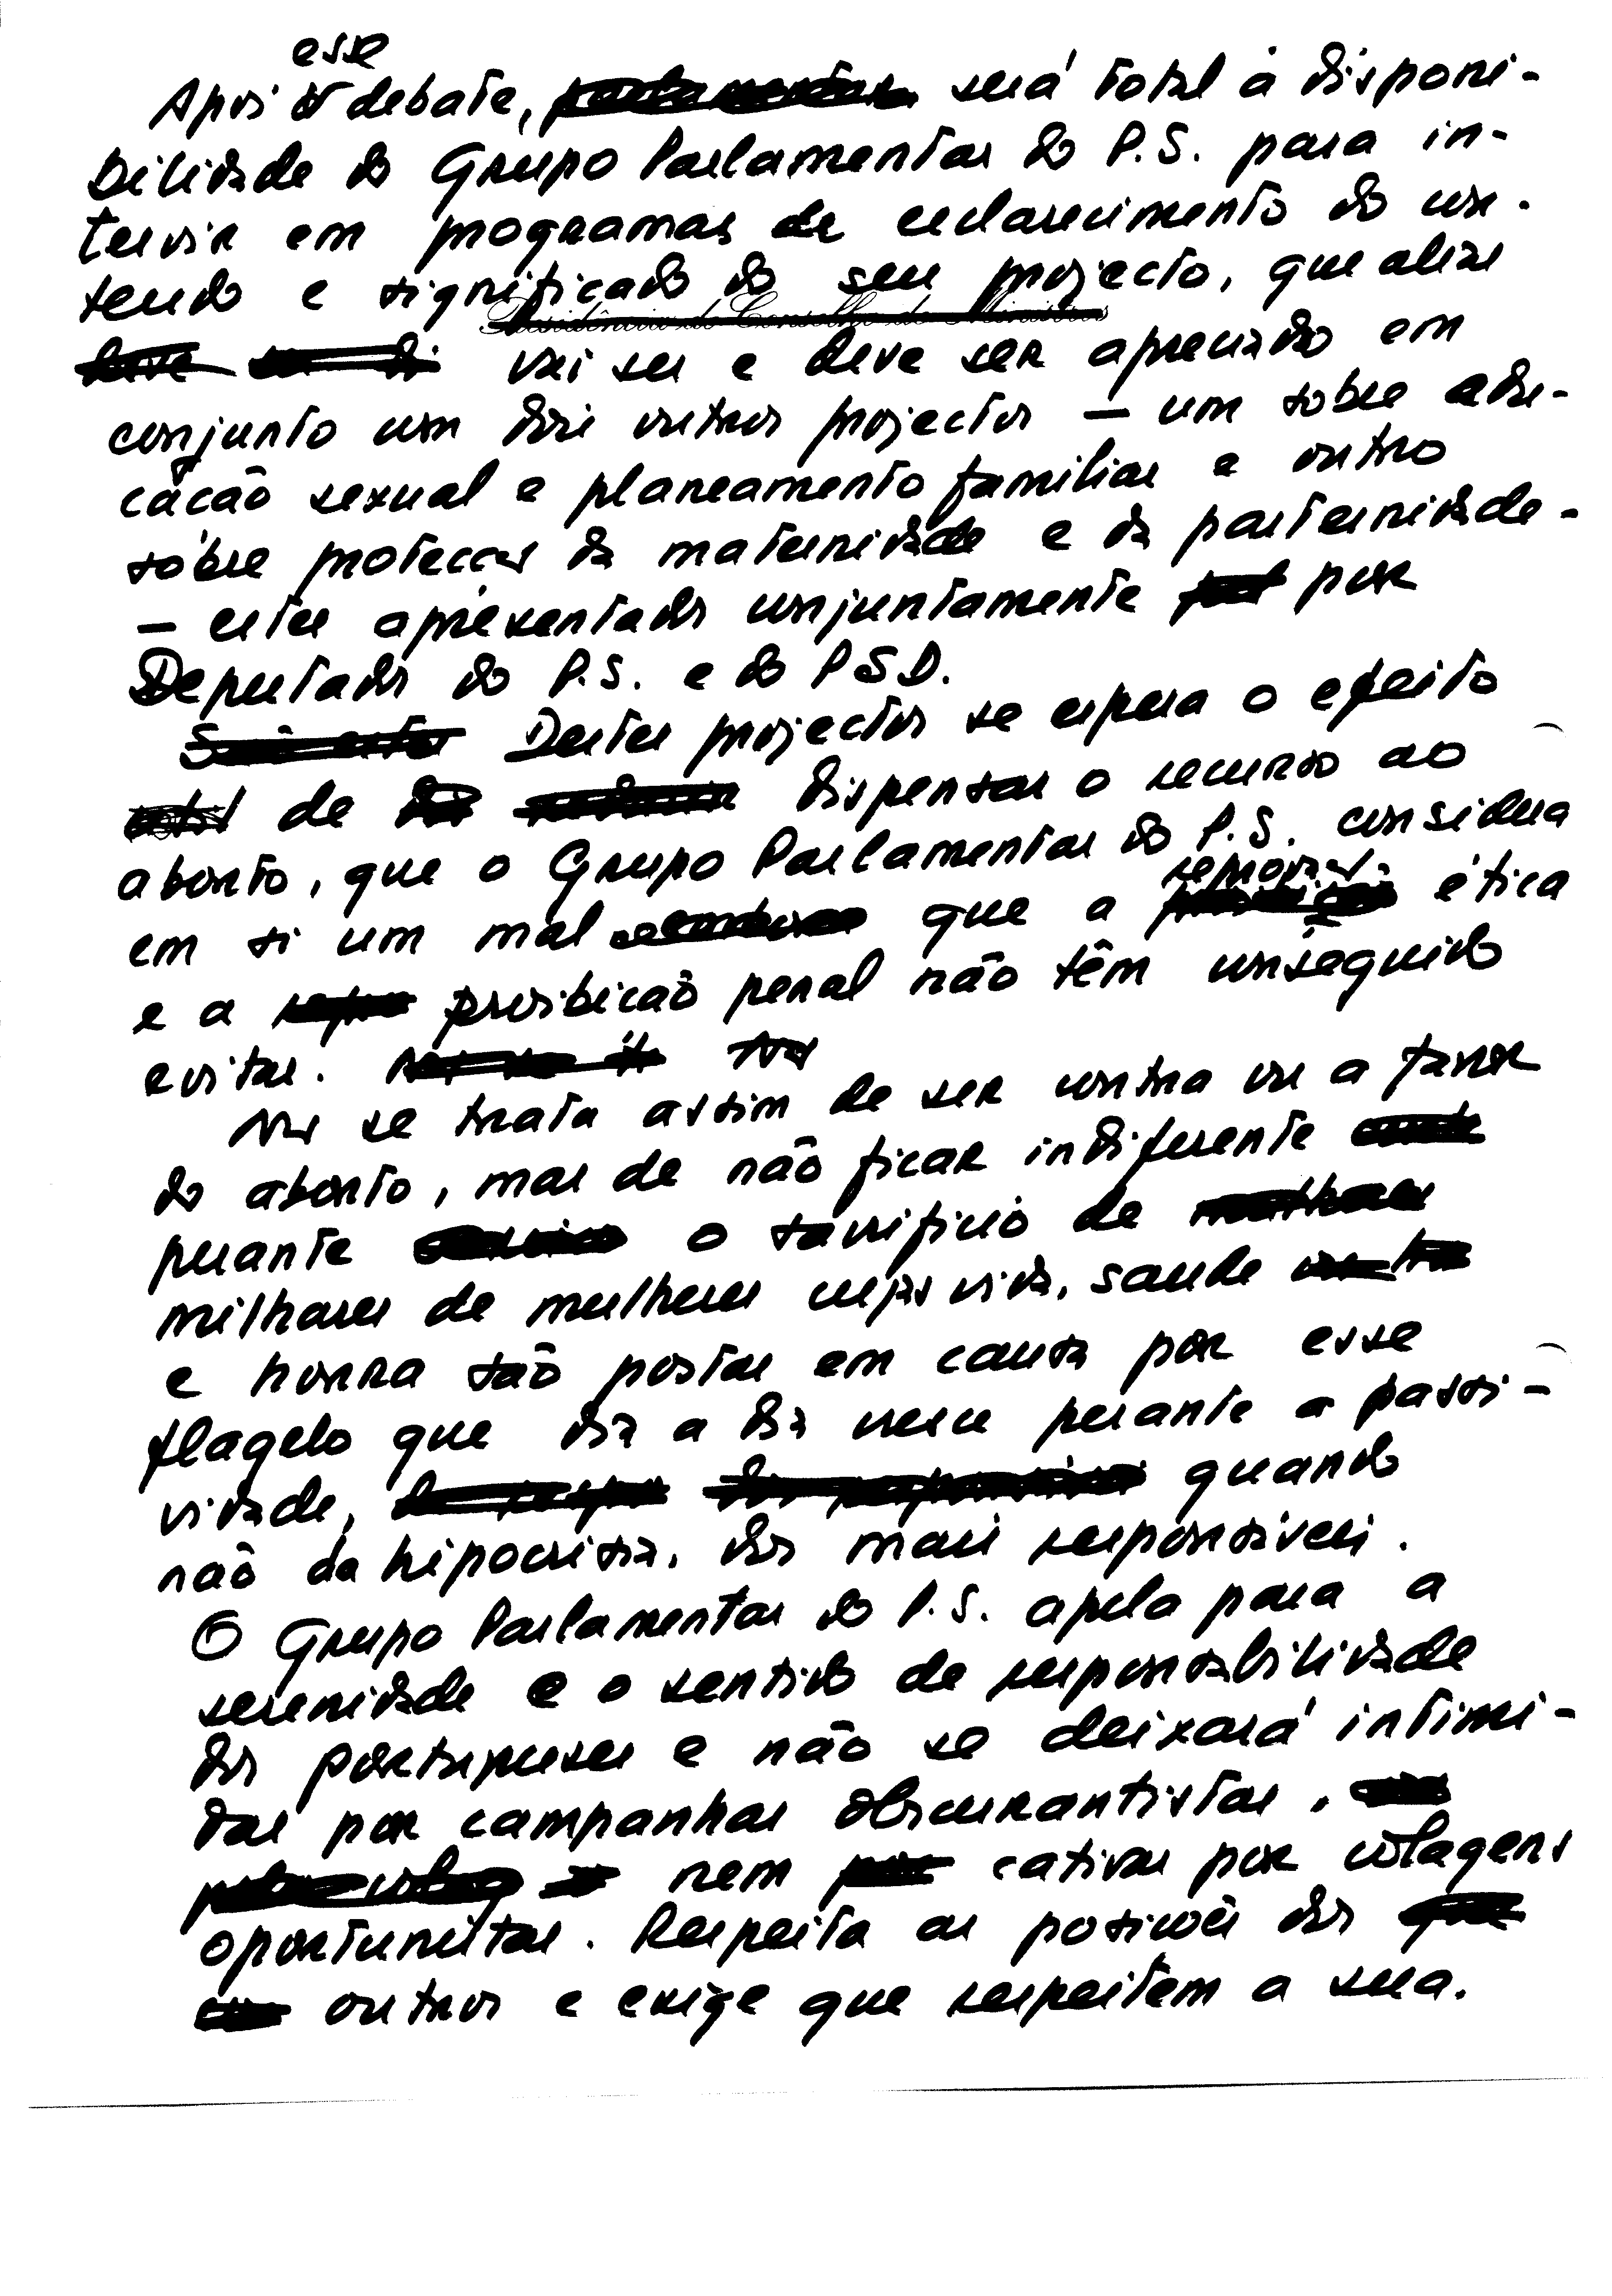 esse
Após o debate, será total a disponi-
bilidade do Grupo Parlamentar do P.S. para in-
tervir em programas de esclarecimento do con-
teudo e significado do seu projecto, que aliás
Presidência do Conselho de Ministros
vai ser e deve ser apreciado em
conjunto com dois outros projectos — um sobre edu-
cação sexual e planeamento familiar e outro
sobre protecção da maternidade e da paternidade -
— estes apresentados conjuntamente por
Deputados do P.S. e do P S D.
Destes projectos se espera o efeito
de dispensar o recurso ao
aborto, que o Grupo Parlamentar do P.S. considera
reprovação
em si um mal que a ética
e a proibição penal não têm conseguido
evitar. Não
Não se trata assim de ser contra ou a favor
do aborto, mas de não ficar indiferente
perante o sacrificio de
milhares de mulheres cujas vida, saude
e honra são postas em causa por esse
flagelo que dia a dia cresce perante a passi-
vidade, quando
não da hipocrisia, dos mais responsáveis.
O Grupo Parlamentar do P.S. apela para a
serenidade e o sentido de responsabilidade
dos portugueses e não se deixará intimi-
dar por campanhas obscurantistas,
nem cativar por colagens
oportunistas. Respeita as posições dos
outros e exige que respeitem a sua.